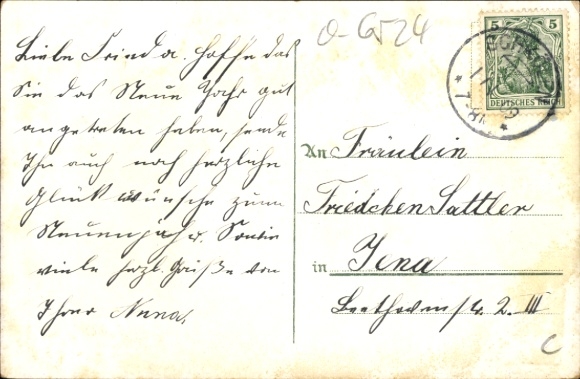 Liebe Frieda. Hoffe das
Sie das Neue Jahr gut
angetreten haben, sende
Ihn auch noch herzliche
Glückwünsche zum
Neuenjahr. Sowie
viele herzl. Grüße von
Ihrer Nanna.
O-6524
5 5
DEUTSCHES REICH
An Fräulein
Friedchen Sattler
in Jena
Beethovenstr. 2. III
C